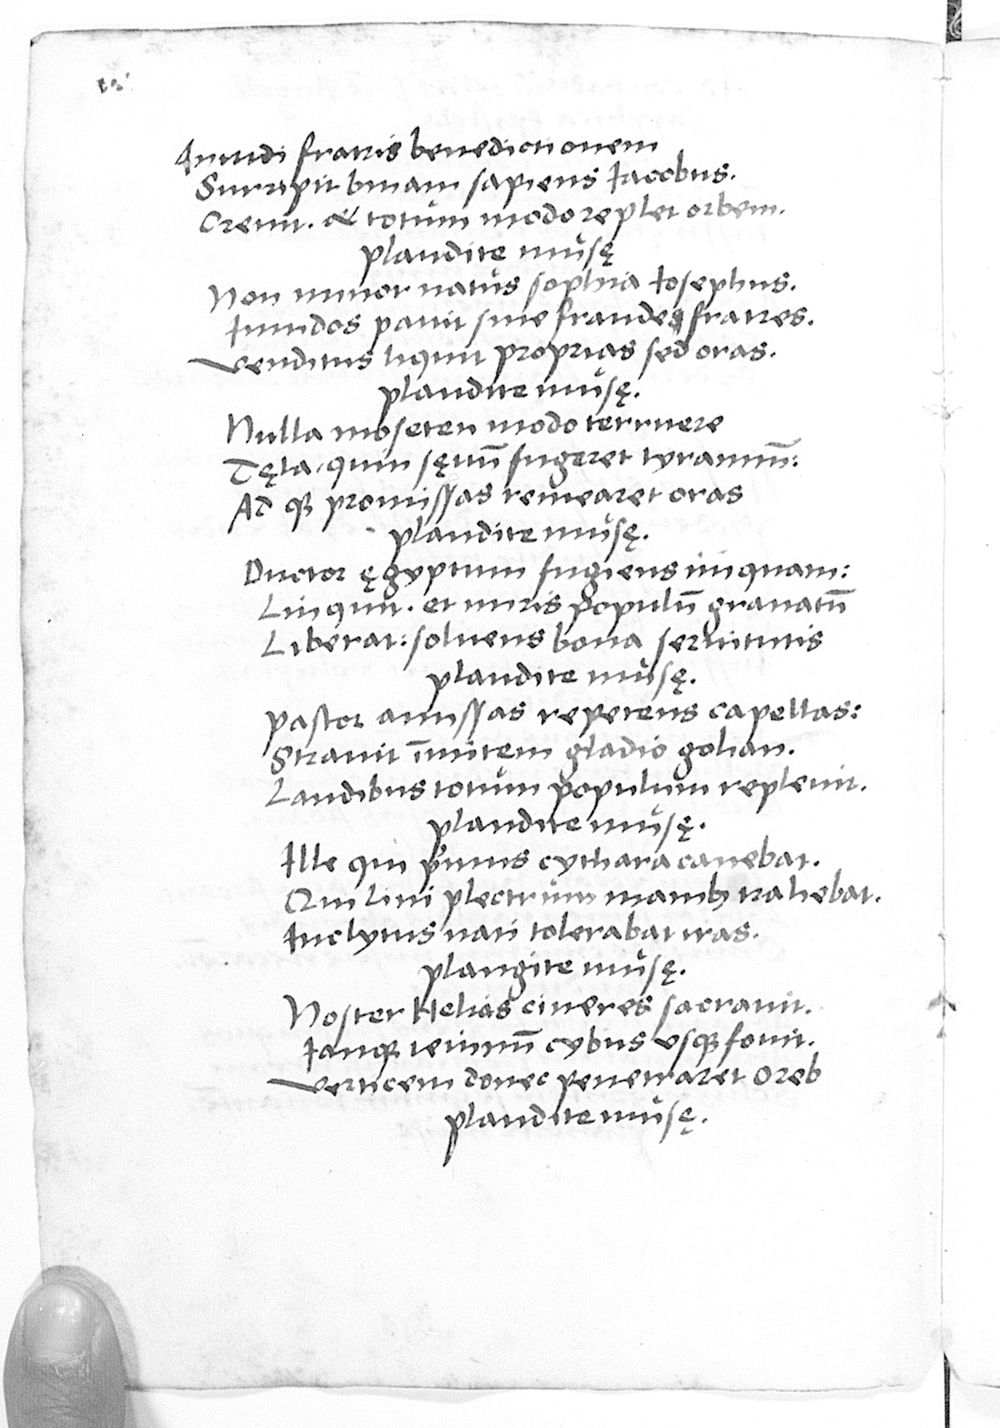 Inuidi fratris benedictionem
Surripit binam sapiens Iacobus.
Creuit. & totum modo replet orbem.
plaudite musę
Non minor natus sophia Iosephus.
Inuidos pauit sine fraude fratres.
Venditus liquit proprias sed oras.
plaudite musę.
Nulla moseten modo terruere
Tęla, quin sęuū fugeret tyrannū:
Ad qꝫ promissas remearet oras
plaudite musę.
Ductor ęgyptum fugiens iniquam:
Linquit. et miris populū grauatū
Liberat: soluens bona seruitutis
plaudite musę.
Pastor amissas repetens capellas:
Strauit īmitem gladio golian.
Laudibus totum populum repleuit.
plaudite musę.
Ille qui pͥmus cythara canebat.
Qui lini plectrum manibꝫ trahebat.
Inclytus nati tolerabat iras.
plangite musę.
Noster Helias cineres sacrauit.
Ianqꝫ ieiunū cybus vsqꝫ fouit.
Verticem donec penetraret Oreb
plaudite musę.